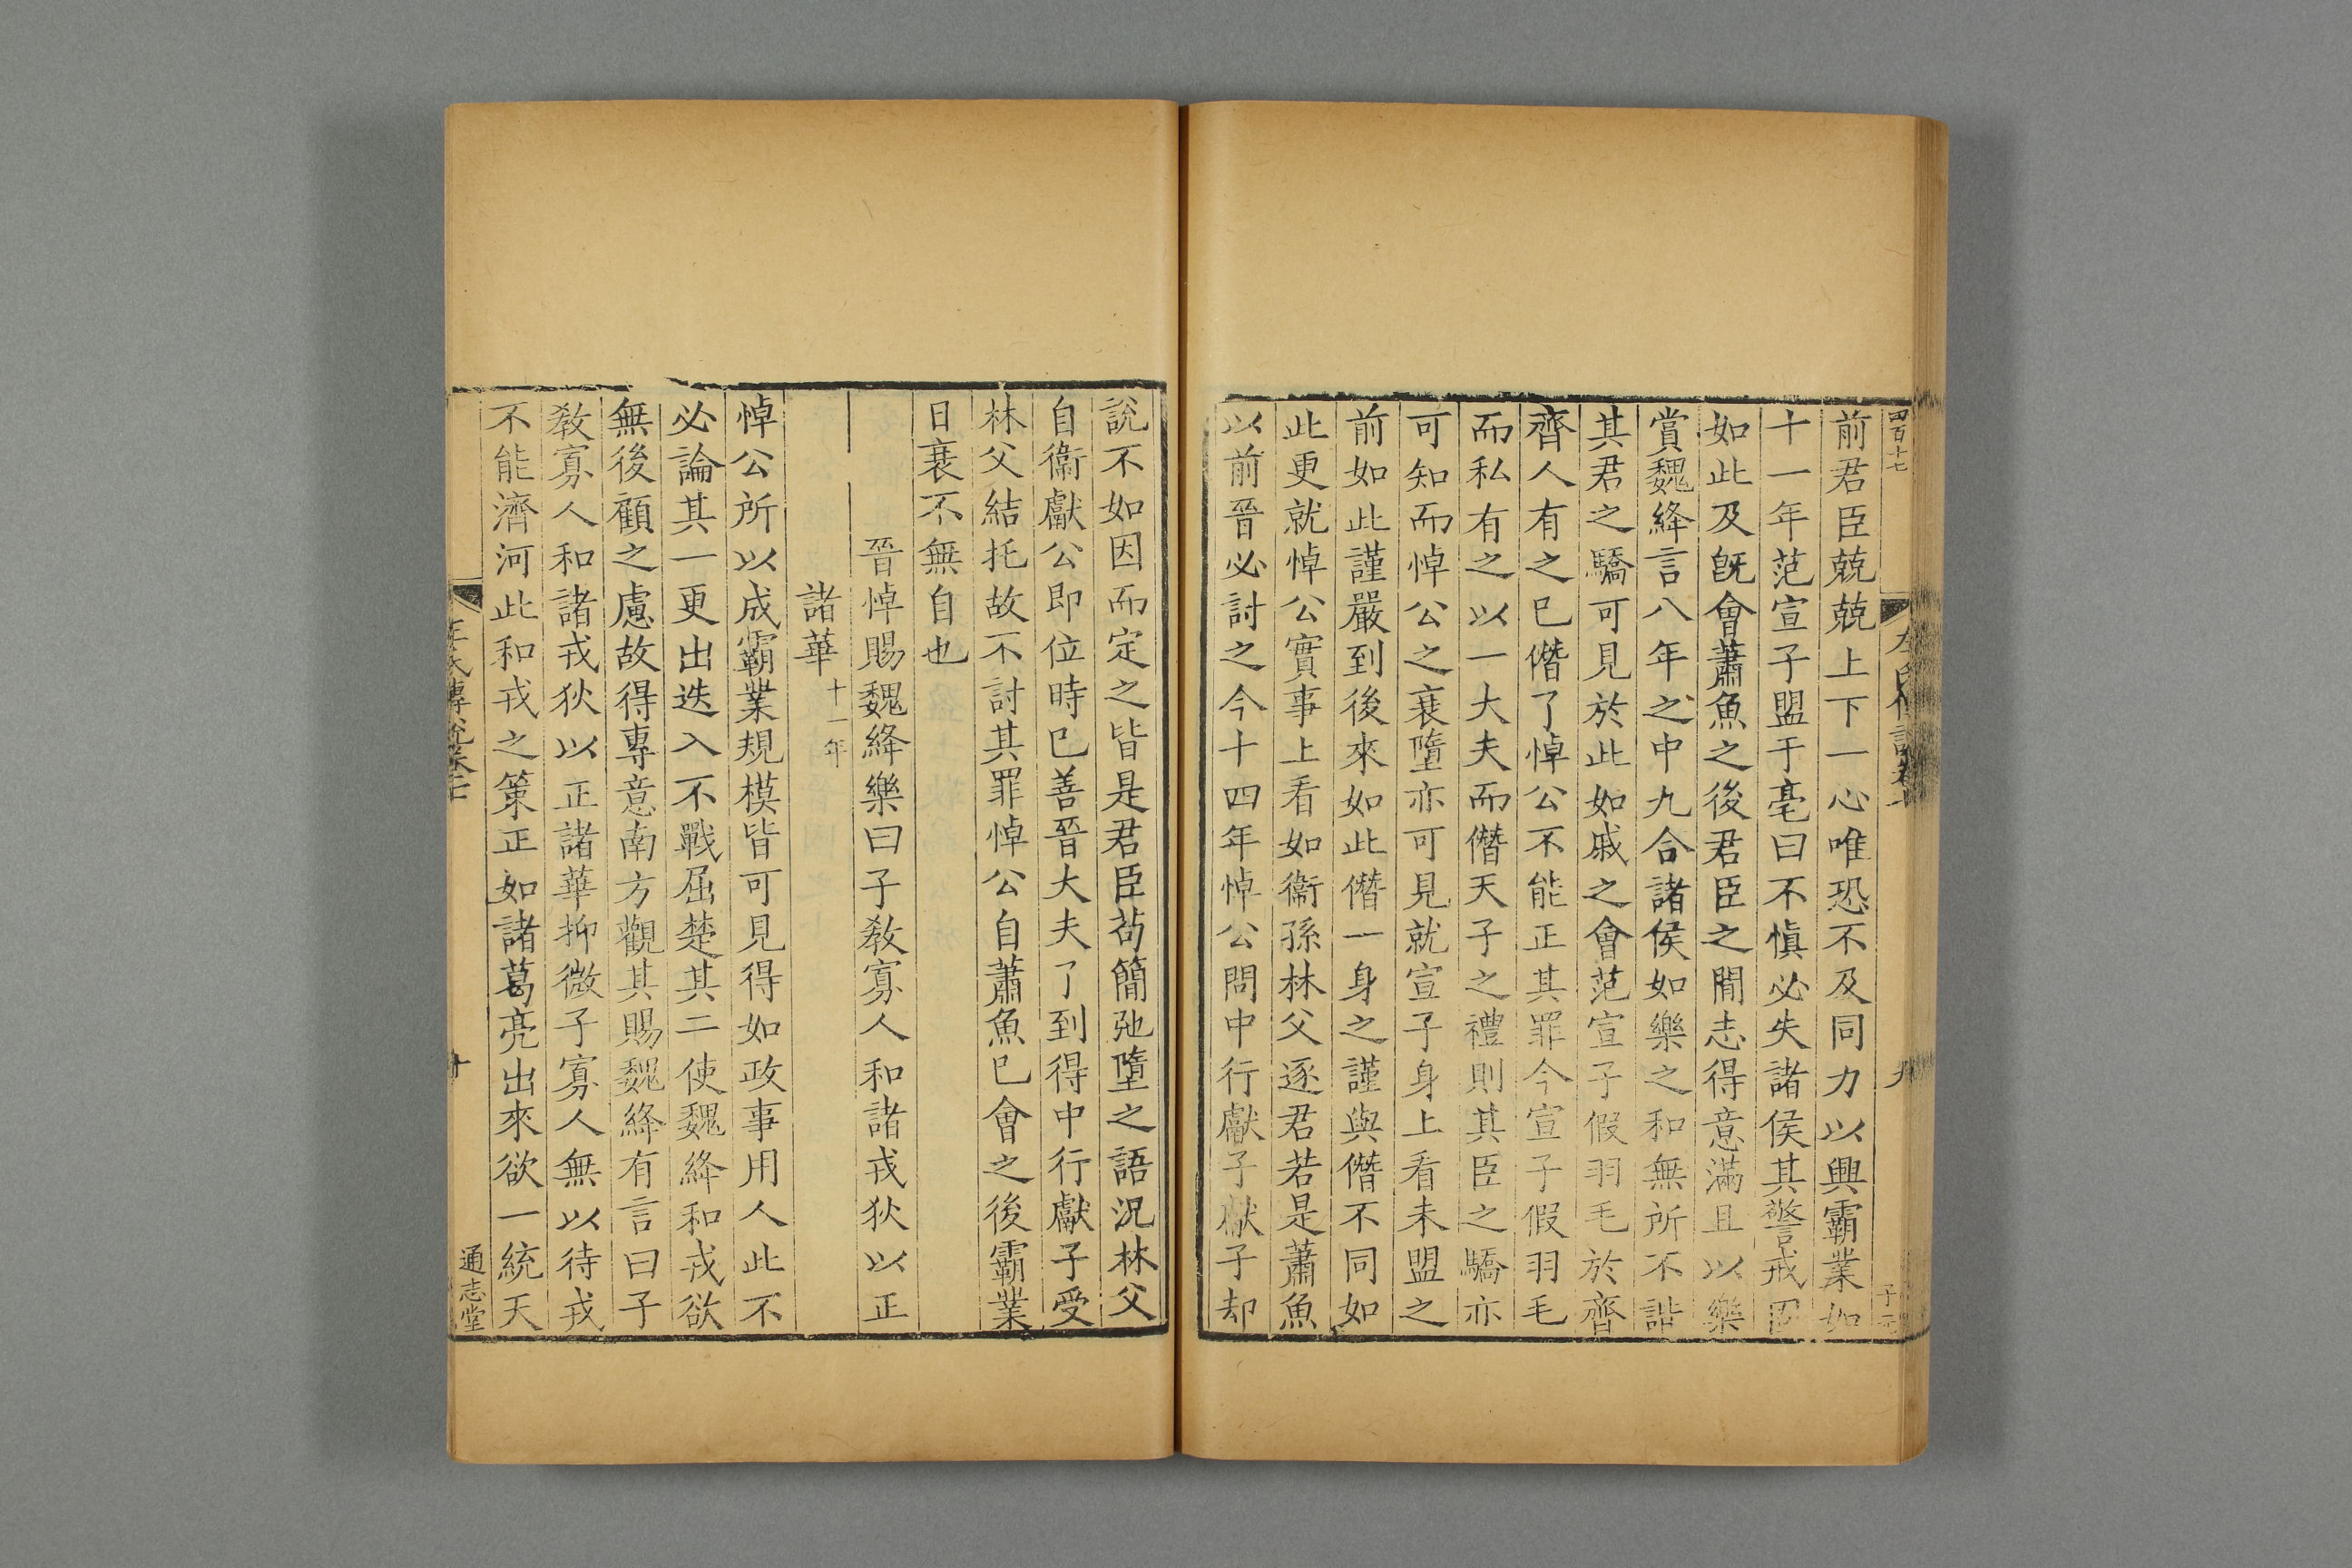 四百十七
九
前君臣兢兢上下一心唯恐不及同力以興霸業如
十一年范宣子盟于亳曰不愼必失諸侯其警戒固
如此及旣會蕭魚之後君臣之閒志得意滿且以樂
賞魏絳言八年之中九合諸侯如樂之和無所不諧
其君之驕可見於此如戚之會范宣子假羽毛於齊
齊人有之巳僭了悼公不能正其罪今宣子假羽毛
而私有之以一大夫而僭天子之禮則其臣之驕亦
可知而悼公之衰墮亦可見就宣子身上看未盟之
前如此謹嚴到後來如此僭一身之謹與僭不同如
此更就悼公實事上看如衞孫林父逐君若是蕭魚
以前晉必討之今十四年悼公問中行獻子獻子却
說不如因而定之皆是君臣苟簡弛墮之語況林父
自衞獻公即位時巳善晉大夫了到得中行獻子受
林父結托故不討其罪悼公自蕭魚巳會之後霸業
日衰不無自也
晉悼賜魏絳樂曰子敎寡人和諸戎狄以正
諸華十一年
悼公所以成霸業規模皆可見得如政事用人此不
必論其一更出迭入不戰屈楚其二使魏絳和戎欲
無後顧之慮故得專意南方觀其賜魏絳有言曰子
敎寡人和諸戎狄以正諸華抑微子寡人無以待戎
不能濟河此和戎之策正如諸葛亮出來欲一統天
左氏傳說卷七
十
通志堂